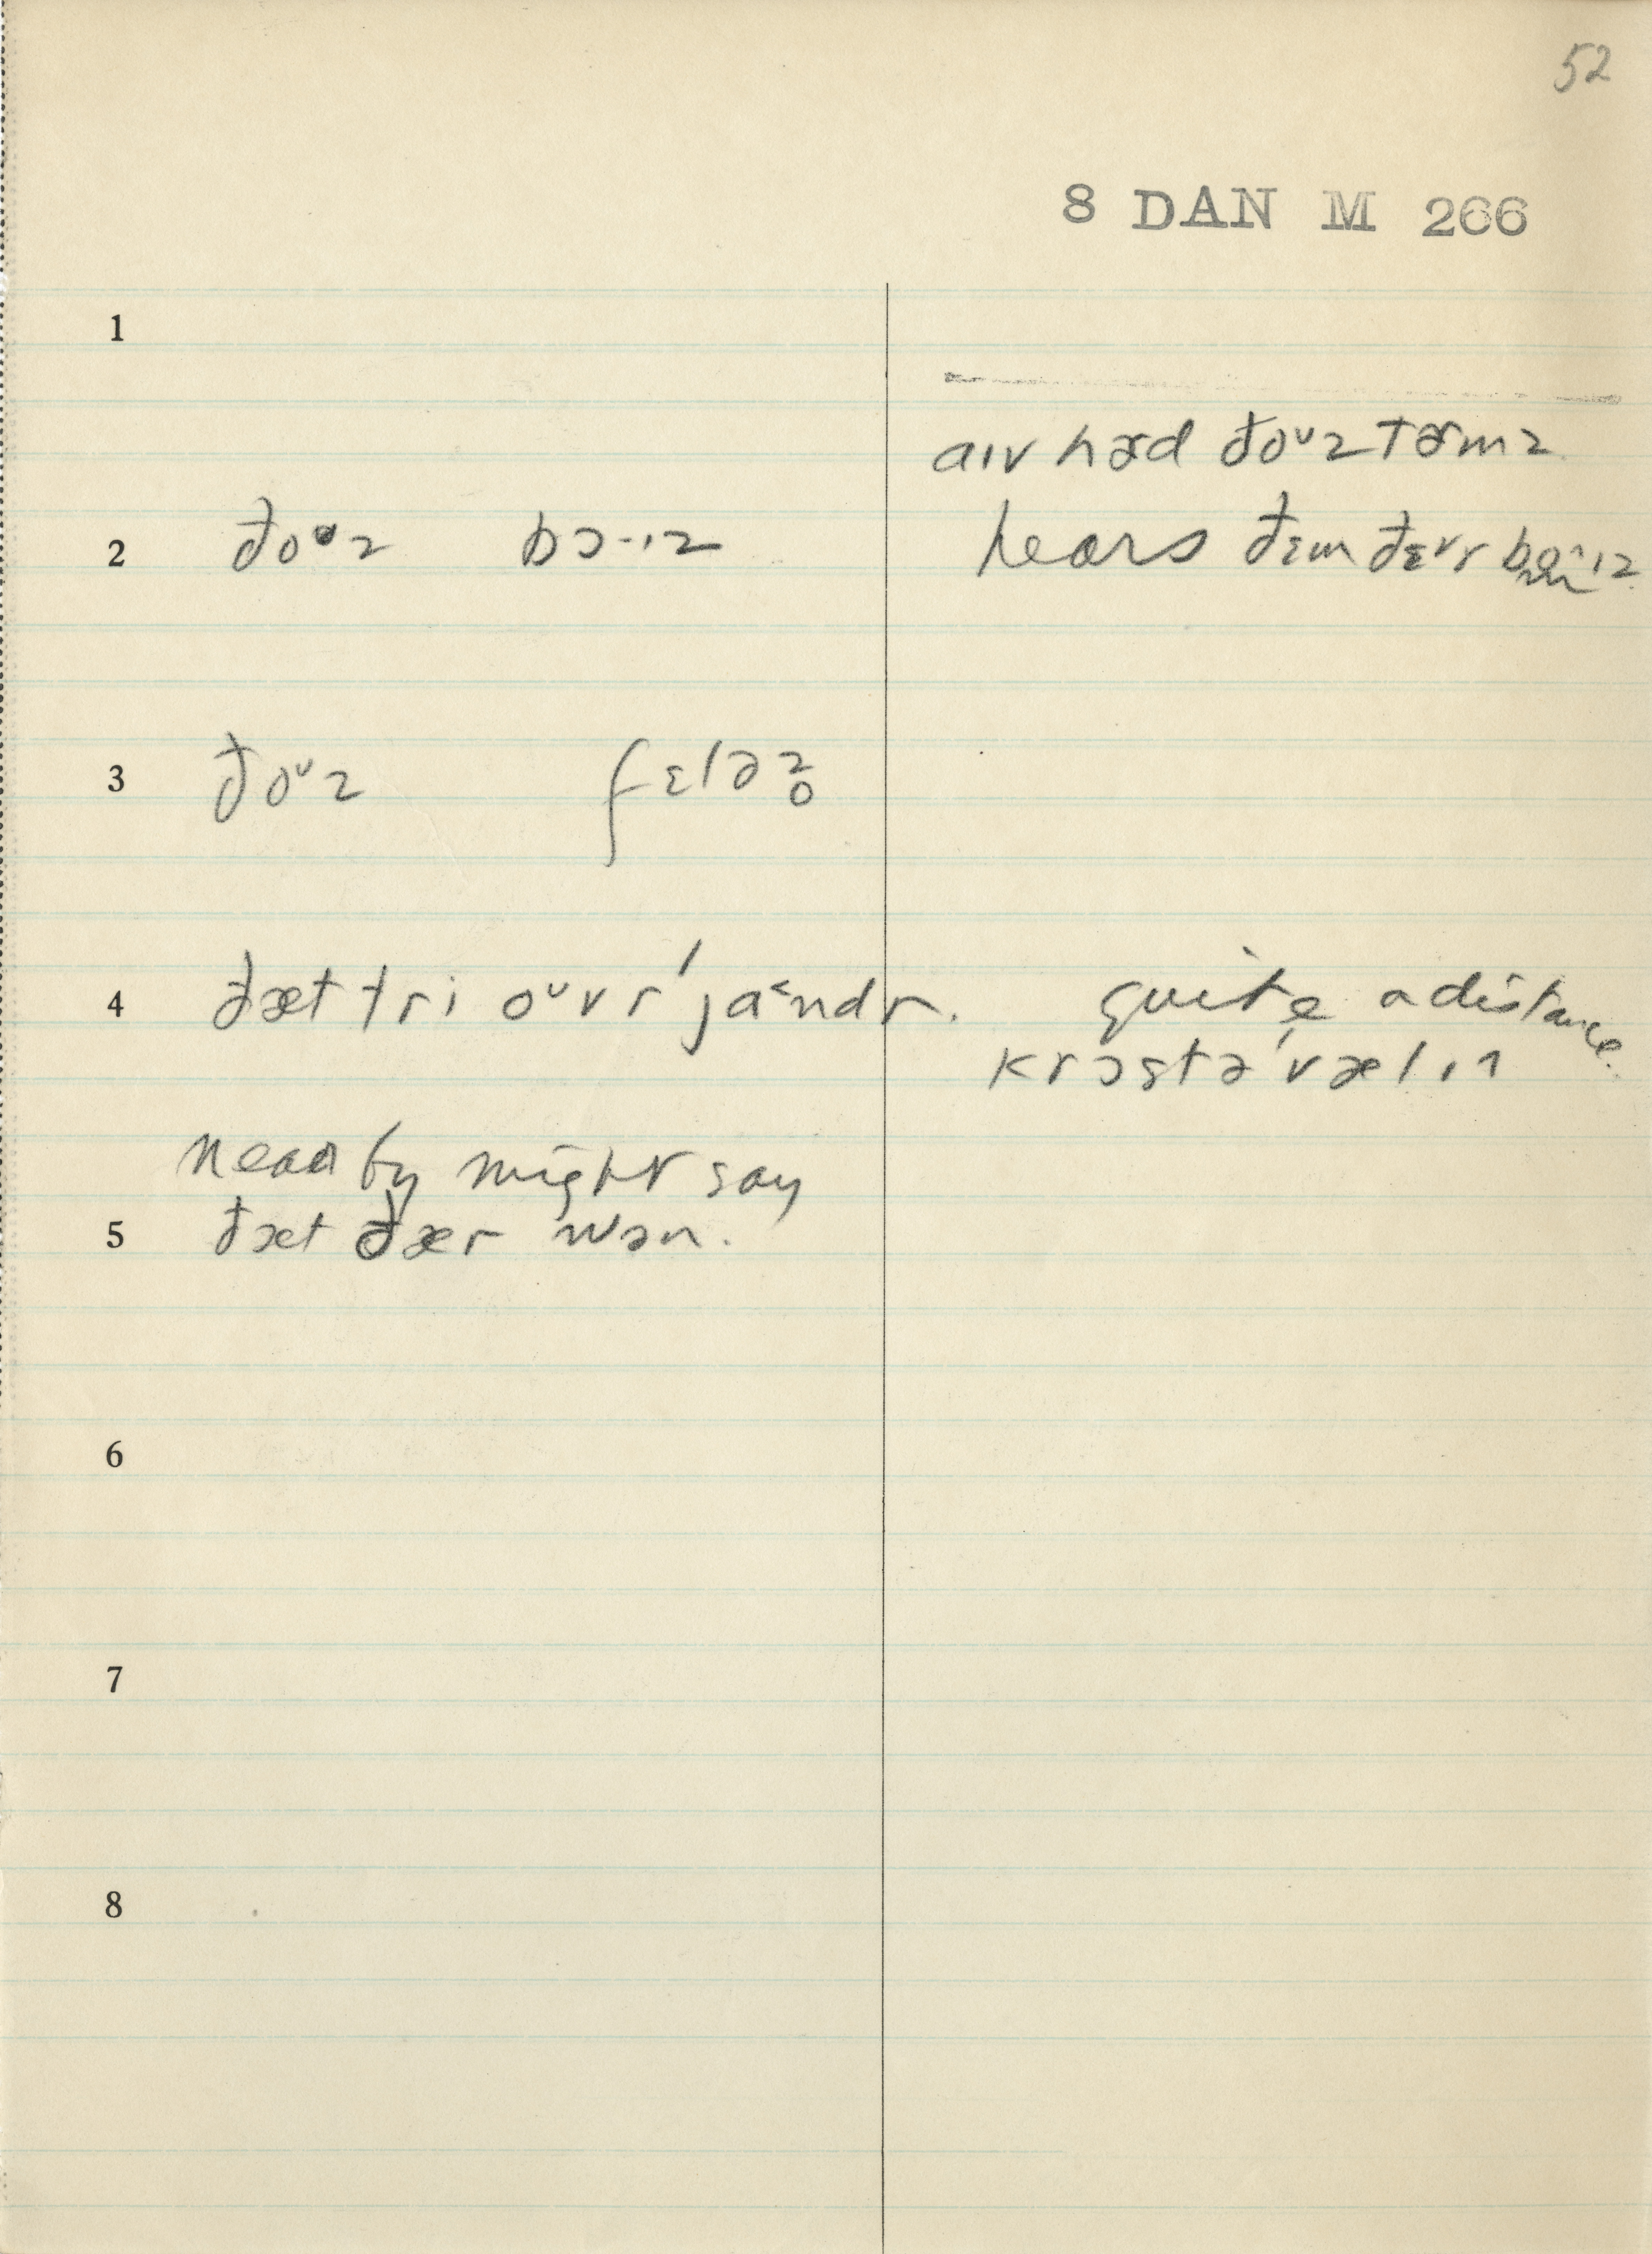 52
8 DAN M 266
1
aɪv həd ðoᶷz tɚmz
2 ðoᶷz bɔ·ɪz
hears ðɛm ðɛᵛr
3 ðoᶷz fɛləz̥
4 ðæt tri oᶷvr ˈja˂ndr. quite a distance
krɔst ə ˈvælɪ
nearby might say
5 ðæt ðær wən.
6
7
8